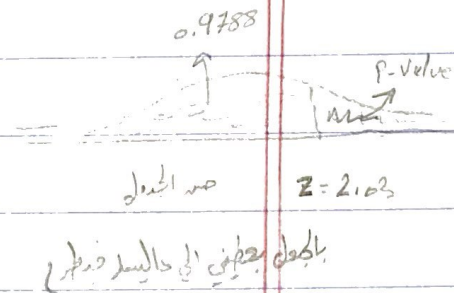 0.9788
P-Value
من الجدول
Z = 2.03
بالجدول بعطيني الي عاليسار فبطرح